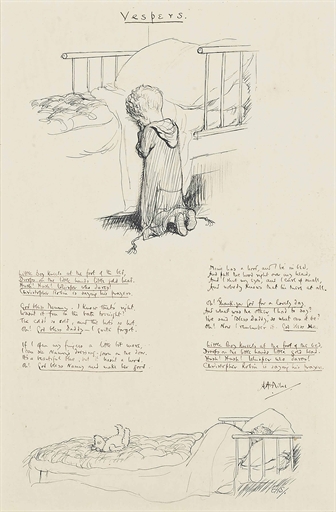 Vespers.
Little Boy kneels at the foot of the bed,
Droops on the little hands little gold head.
Hush! Hush! Whisper who dares!
Christopher Robin is saying his prayers.
God bless Mummy. I know that's right.
Wasn't it fun in the bath to-night?
The cold's so cold, and the hot's so hot.
Oh! God bless Daddy - I quite forgot.
If I open my fingers a little bit more,
I can see Nanny's dressing-gown on the door.
It's a beautiful blue, but it hasn't a hood.
Oh! God bless Nanny and make her good.
Mine has a hood, and I lie in bed,
And pull the hood right over my head,
And I shut my eyes, and I curl up small,
And nobody knows that I'm there at all.
Oh! Thank you, God, for a lovely day.
And what was the other I had to say?
I said "Bless Daddy," so what can it be?
Oh! Now I remember it. God bless Me.
Little Boy kneels at the foot of the bed,
Droops on the little hands little gold head.
Hush! Hush! Whisper who dares!
Christopher Robin is saying his prayers.
A.A. Milne